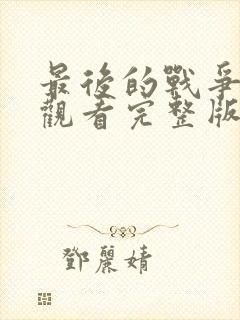 最後的戰爭
觀看完整版
鄧麗婧